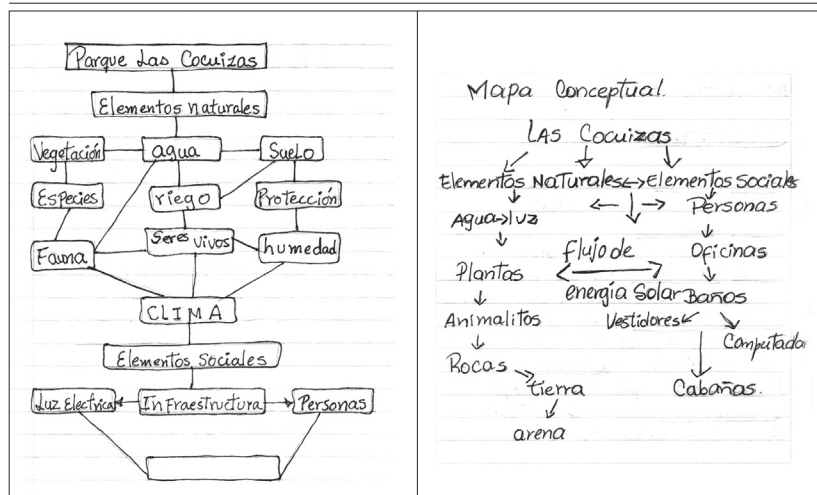 Parque Las Cocuizas
Elementos naturales
Vegetación agua Suelo
Especies riego Protección
Fauna Seres vivos humedad
CLIMA
Elementos Sociales
Luz Electrica Infraestructura Personas
Mapa Conceptual.
LAS Cocuizas
Elementos NaTurales Elementos Sociales
Agua luz Personas
Plantas Flujo de Oficinas
energía Solar Baños
Animalitos Vestidores Computado
Rocas Tierra Cabañas.
arena